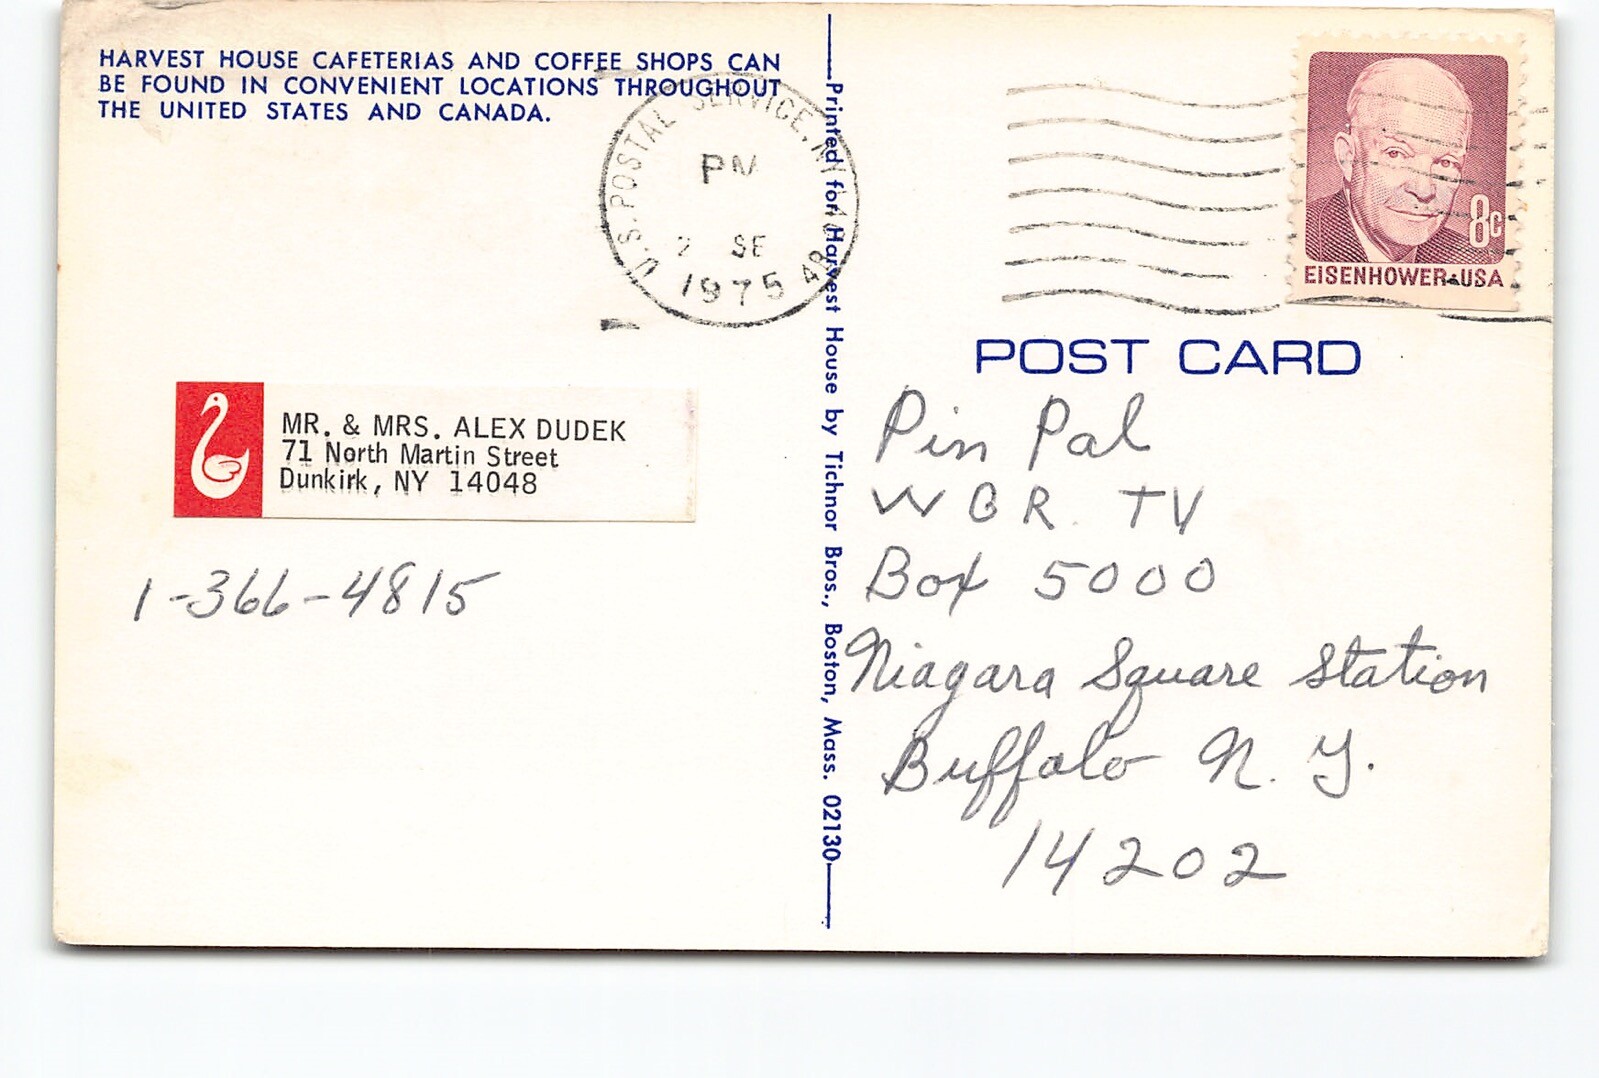 HARVEST HOUSE CAFETERIAS AND COFFEE SHOPS CAN
BE FOUND IN CONVENIENT LOCATIONS THROUGHOUT
THE UNITED STATES AND CANADA.
U.S. POSTAL SERVICE, NY
PM
2 SE
1975
MR. & MRS. ALEX DUDEK
71 North Martin Street
Dunkirk, NY 14048
1-366-4815
Printed for Harvest House by Tichnor Bros., Boston, Mass. 02130
8c
EISENHOWER·USA
POST CARD
Pin Pal
W G R. TV
Box 5000
Niagara Square Station
Buffalo N. Y.
14202